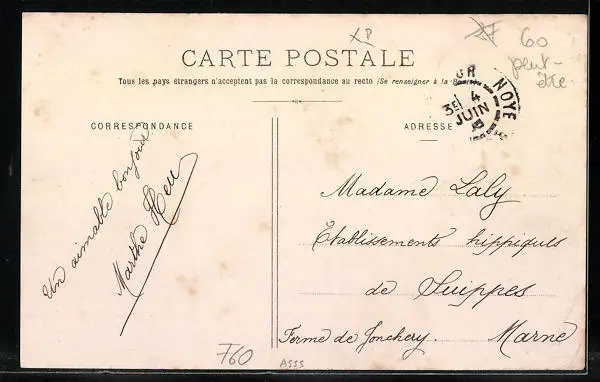 XP
27
60
peut-
être
CARTE POSTALE
Tous les pays étrangers n'acceptent pas la correspondance au recto (Se renseigner à la Poste)
GR NOYE
3E 4
JUIN
CORRESPONDANCE
Un aimable bonjour
Marthe Heu
ADRESSE
Madame Laly
Etablissements hippiques
de Suippes
Ferme de Jonchery. Marne
760
ASSS